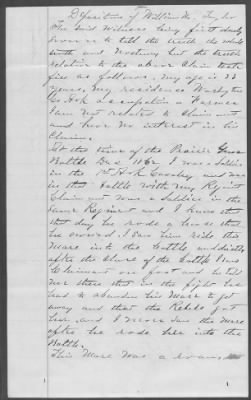 Deposition of William M. Taylor
The said Witness being first duly
sworn to tell the truth the whole
truth and nothing but the truth
relative to the above Claim testi
fies as follows. My age is 33
years, my residence Washington
Co Ark occupation a Farmer
I am not related to Claimant
and have no interest in his
Claim.
At the time of the Prairie Grove
Battle Dec 1862 I was a Soldier
in the 1st Ark Cavalry and was
in that battle with my Regiment
Claimant was a Soldier in the
same Regiment and I know that
that day he rode a mare that
he owned. I saw him ride this
Mare into the battle, and
after the close of the battle I saw
Claimant on foot and he told
me there that in the fight he
had to abandon his Mare to get
away and that the Rebels got
her. and I never saw the mare
after he rode her into the
Battle.
This Mare was a